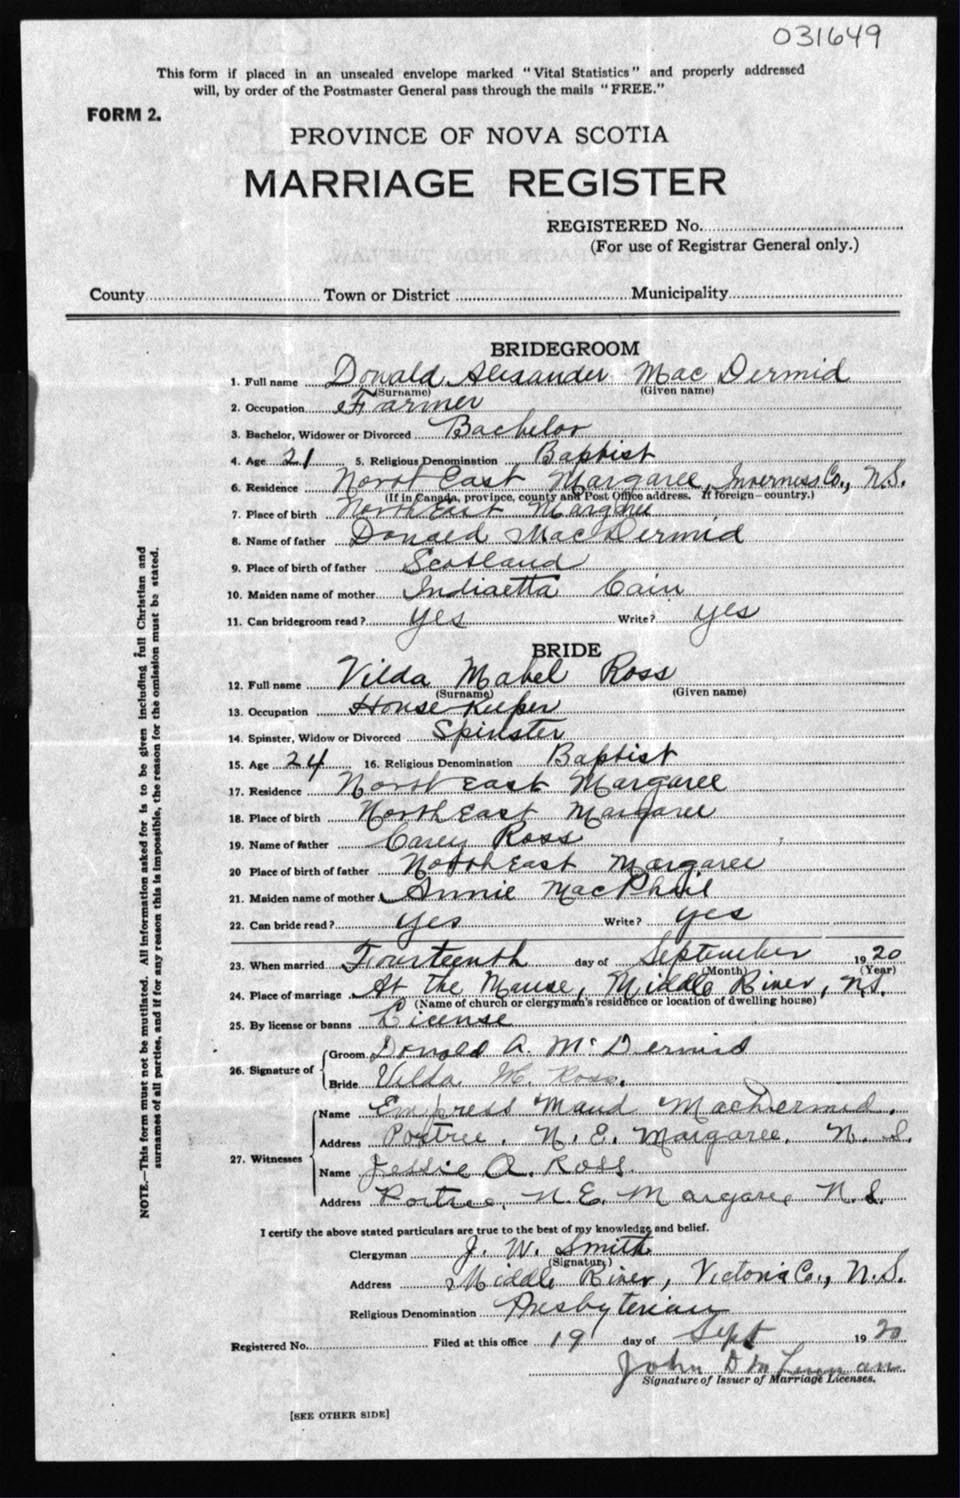 031649
This form if placed in an unsealed envelope marked "Vital Statistics" and properly addressed
will, by order of the Postmaster General pass through the mails "FREE."
FORM 2.
PROVINCE OF NOVA SCOTIA
MARRIAGE REGISTER
REGISTERED No.
(For use of Registrar General only.)
County Town or District Municipality
BRIDEGROOM
1. Full name Donald Alexander Mac Dermid
(Surname) (Given name)
2. Occupation Farmer
3. Bachelor, Widower or Divorced Bachelor
4. Age 21 5. Religious Denomination Baptist
6. Residence North East Margaree, Inverness Co., N.S.
(If in Canada, province, county and Post Office address. If foreign - country.)
7. Place of birth North East Margaree
8. Name of father Donald MacDermid
9. Place of birth of father Scotland
10. Maiden name of mother Indiaetta Cain
11. Can bridegroom read? Yes Write? Yes
BRIDE
12. Full name Vilda Mabel Ross
(Surname) (Given name)
13. Occupation House Keeper
14. Spinster, Widow or Divorced Spinster
15. Age 24 16. Religious Denomination Baptist
17. Residence North East Margaree
18. Place of birth North East Margaree
19. Name of father Carey Ross
20 Place of birth of father North East Margaree
21. Maiden name of mother Annie MacPhail
22. Can bride read? Yes Write? Yes
23. When married Fourteenth day of September 1920
(Month) (Year)
24. Place of marriage At the Manse, Middle River, N.S.
(Name of church or clergyman's residence or location of dwelling house)
25. By license or banns License
26. Signature of
Groom Donald A. McDermid
Bride Vilda M. Ross.
27. Witnesses
Name Empress Maud MacDermid.
Address Portree, N. E. Margaree, N. S.
Name Jessie A. Ross.
Address Portree, N. E. Margaree N. S.
I certify the above stated particulars are true to the best of my knowledge and belief.
Clergyman J. W. Smith
(Signature)
Address Middle River, Victoria Co., N.S.
Religious Denomination Presbyterian
Registered No. Filed at this office 19 day of Sept 1920
John D
Signature of Issuer of Marriage Licenses.
[SEE OTHER SIDE]
NOTE.—This form must not be mutilated. All information asked for is to be given including full Christian and
surnames of all parties, and if for any reason this is impossible, the reason for the omission must be stated.